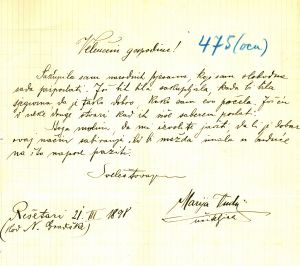 Velecijenjeni gospodine!
475 (ocu)
Sakupila sam narodnih pjesama, koje sam slobodna
sada priposlati. Još bih bila sakupljala, kada bi bila
sigurna da je tako dobro. Kako sam evo počela, još ću
i neke druge stvari kad ih još saberem poslati.
Stoga molim, da mi izvolite javiti, da li je dobar
ovaj način sabiranja ili bi možda imala u buduće
na što napose paziti.
Sveštovanjem
Rešetari 21. III 1898
(kod N. Gradiške)
Marija
učiteljica